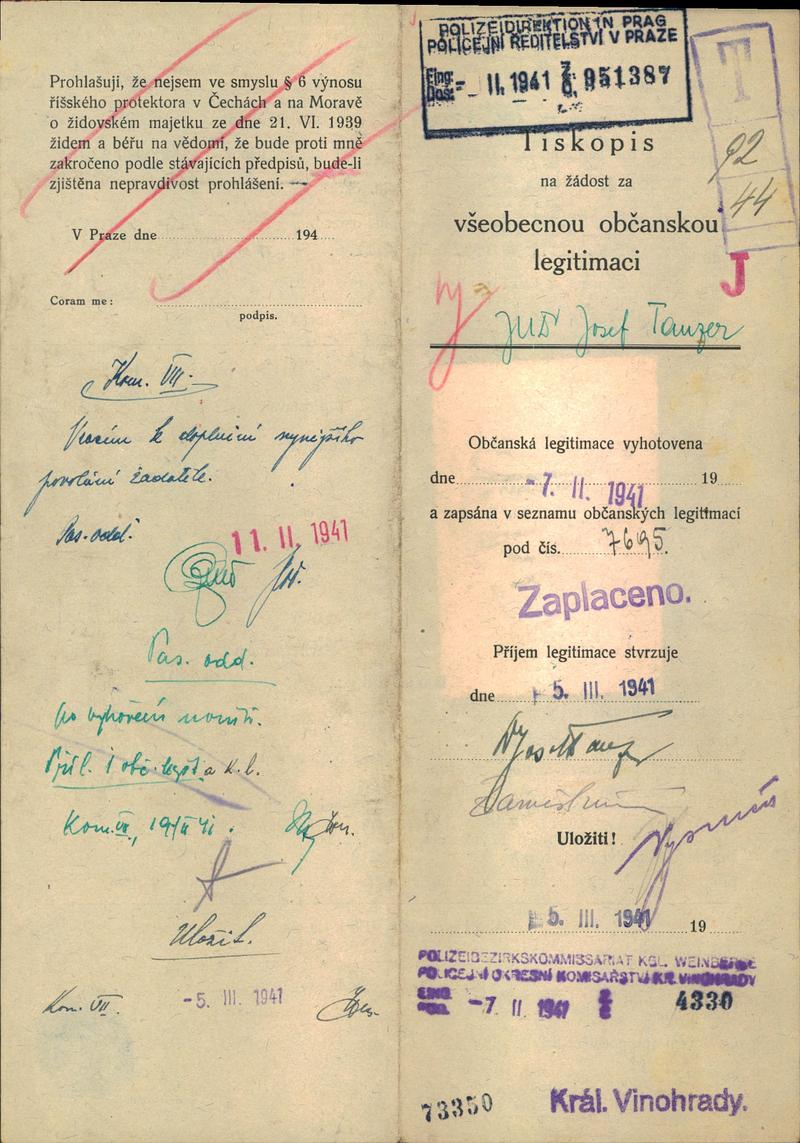 Prohlašuji, že nejsem ve smyslu § 6 výnosu
říšského protektora v Čechách a na Moravě
o židovském majetku ze dne 21. VI. 1939
židem a béřu na vědomí, že bude proti mně
zakročeno podle stávajících předpisů, bude-li
zjištěna nepravdivost prohlášení. —
V Praze dne 194
Coram me:
podpis.
Kom. VII.
Vracím k doplnění nynějšího
povolání žadatele.
Pas. odd.
11. II. 1941
Pas. odd.
po vyhovění
Příl. 1 obč. legit. a k. l.
Kom. VII, 19/II 41.
Uložit.
Kom. VII.
-5. III. 1941
POLIZEIDIREKTION IN PRAG
POLICEJNÍ ŘEDITELSTVÍ V PRAZE
Eing.
Došlo II. 1941 Z. 951387
T
92
44
Tiskopis
na žádost za
všeobecnou občanskou
legitimaci
J
JUDr Josef Tanzer
Občanská legitimace vyhotovena
dne -7. II. 1941 19
a zapsána v seznamu občanských legitimací
pod čís. 7695.
Zaplaceno.
Příjem legitimace stvrzuje
dne 5. III. 1941
Dr Josef Tanzer
Uložiti!
5. III. 1941 19
POLIZEIBEZIRKSKOMMISSARIAT KGL. WEINBERGE
POLICEJNÍ OKRESNÍ KOMISAŘSTVÍ KR. VINOHRADY
EING. -7 II 1941 4330
73350
Král. Vinohrady.